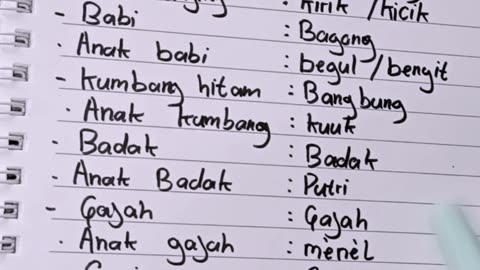 : Kirik / kicik
- Babi : Bagong
· Anak babi : begul / bengit
- Kumbang hitam : Bangbung
· Anak kumbang : kuuk
- Badak : Badak
· Anak Badak : Putri
- Gajah : Gajah
· Anak gajah : mènèl